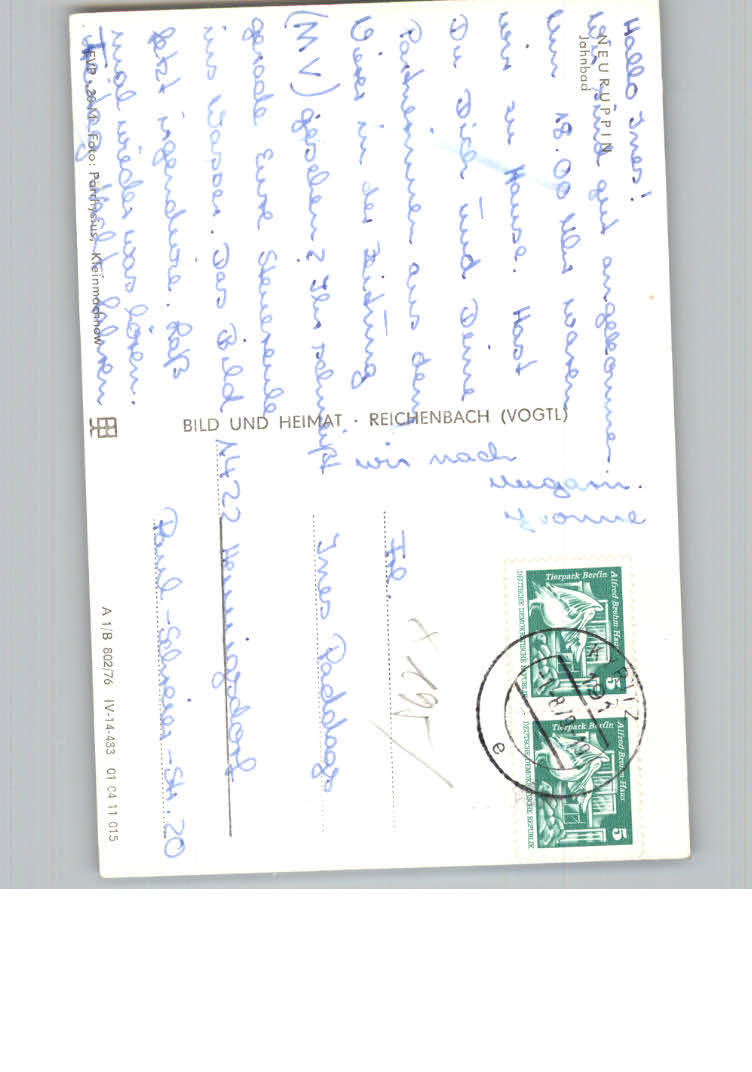 NEURUPPIN
Jahnbad
Hallo Ines!
Wir sind gut angekommen.
Um 18.00 Uhr waren
wir zu Hause. Hast
Du Dich und Deine
Partnerinnen aus dem
Vierer in der Zeitung
(MV) gesehen? Ihr schmeißt
gerade Eure Steuerfrau
ins Wasser. Das Bild
Laß
mal wieder was hören.
fahren
wir nach
Ungarn.
Yvonne
EVP 20 M Foto: Parchysius, Kleinmachnow
BILD UND HEIMAT · REICHENBACH (VOGTL)
A 1/B 802/76 IV-14-433 01 04 11 015
Frl.
Ines
1422 Hennigsdorf
Paul-Schreier-Str. 20
Tierpark Berlin
Alfred-Brehm-Haus
DEUTSCHE DEMOKRATISCHE REPUBLIK
5
Tierpark Berlin
Alfred-Brehm-Haus
DEUTSCHE DEMOKRATISCHE REPUBLIK
5
e